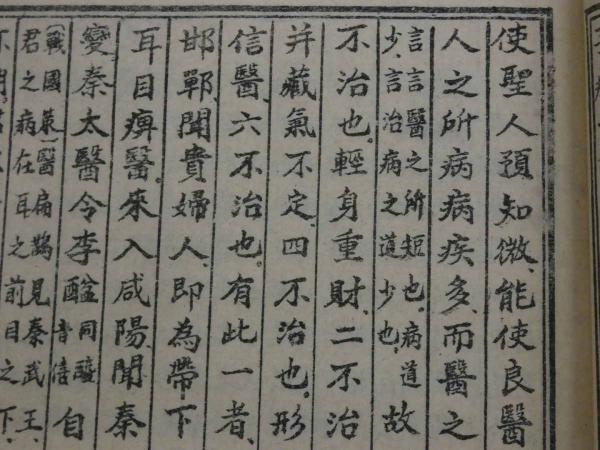 使聖人預知微、能使良醫
人之所病病疾多、而醫之
言言醫之所短也。病道
少、言治病之道少也、
故
不治也。輕身重財、二不治
并藏氣不定、四不治也。形
信醫、六不治也。有此一者、
邯鄲、聞貴婦人、即為帶下
耳目痹醫。來入咸陽、聞秦
變、秦太醫令李醯
同
音
自
(戰國策)醫扁鵲見秦武王、
君之病在耳之前目之下、